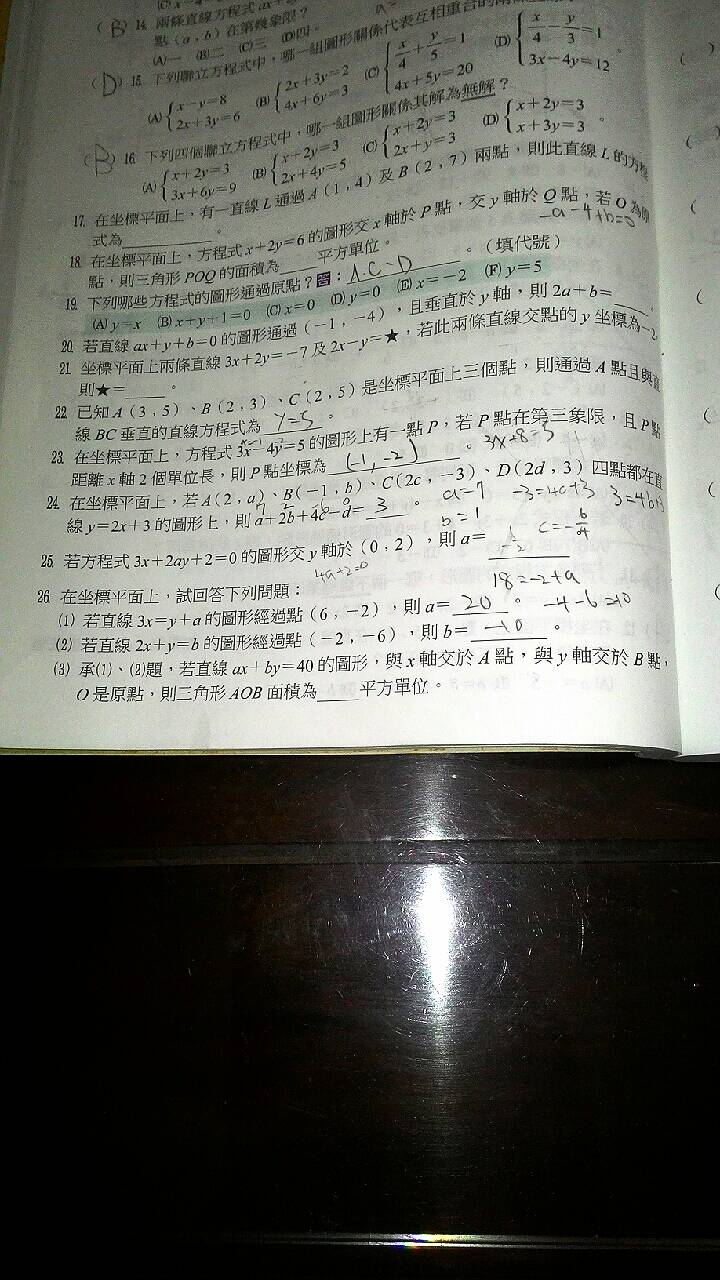 (B) 14. 兩條直線方程式
點(a,b)在第幾象限?
(A)一 (B)二 (C)三 (D)四。
(D) 15. 下列聯立方程式中,哪一組圖形關係代表互相重合的兩條
(A){x-y=8 2x+3y=6 (B){2x+3y=2 4x+6y=3 (C){x/4+y/5=1 4x+5y=20 (D){x/4-y/3=1 3x-4y=12 。
(B) 16. 下列四個聯立方程式中,哪一組圖形關係其解為無解?
(A){x+2y=3 3x+6y=9 (B){x+2y=3 2x+4y=5 (C){x+2y=3 2x+y=3 (D){x+2y=3 x+3y=3 。
17. 在坐標平面上,有一直線L通過A(1,4)及B(2,7)兩點,則此直線L的方程
式為______。
-a-4+b=0
18. 在坐標平面上,方程式x+2y=6的圖形交x軸於P點,交y軸於Q點,若O為原
點,則三角形POQ的面積為____平方單位。
19. 下列哪些方程式的圖形通過原點?答:A、C、D。(填代號)
(A) y=x (B) x+y+1=0 (C) x=0 (D) y=0 (E) x=-2 (F) y=5
20. 若直線ax+y+b=0的圖形通過(-1,-4),且垂直於y軸,則2a+b=____.
21. 坐標平面上兩條直線3x+2y=-7及2x-y=★,若此兩條直線交點的y坐標為-2,
則★=____。
22. 已知A(3,5)、B(2,3)、C(2,5)是坐標平面上三個點,則通過A點且與直
線BC垂直的直線方程式為 y=5 。
23. 在坐標平面上,方程式3x-4y=5的圖形上有一點P,若P點在第三象限,且P點
距離x軸2個單位長,則P點坐標為 (-1,-2) 。
24. 在坐標平面上,若A(2,a)、B(-1,b)、C(2c,-3)、D(2d,3)四點都在直
線y=2x+3的圖形上,則a+2b+4c-d= 3 。
a=7 -3=4c+3
b=1
25. 若方程式3x+2ay+2=0的圖形交y軸於(0,2),則a=
4a+2=0
18=-2+a
26. 在坐標平面上,試回答下列問題:
(1) 若直線3x=y+a的圖形經過點(6,-2),則a= 20 。
(2) 若直線2x+y=b的圖形經過點(-2,-6),則b= -10 。
(3) 承(1)、(2)題,若直線ax+by=40的圖形,與x軸交於A點,與y軸交於B點,
O是原點,則三角形AOB面積為____平方單位。